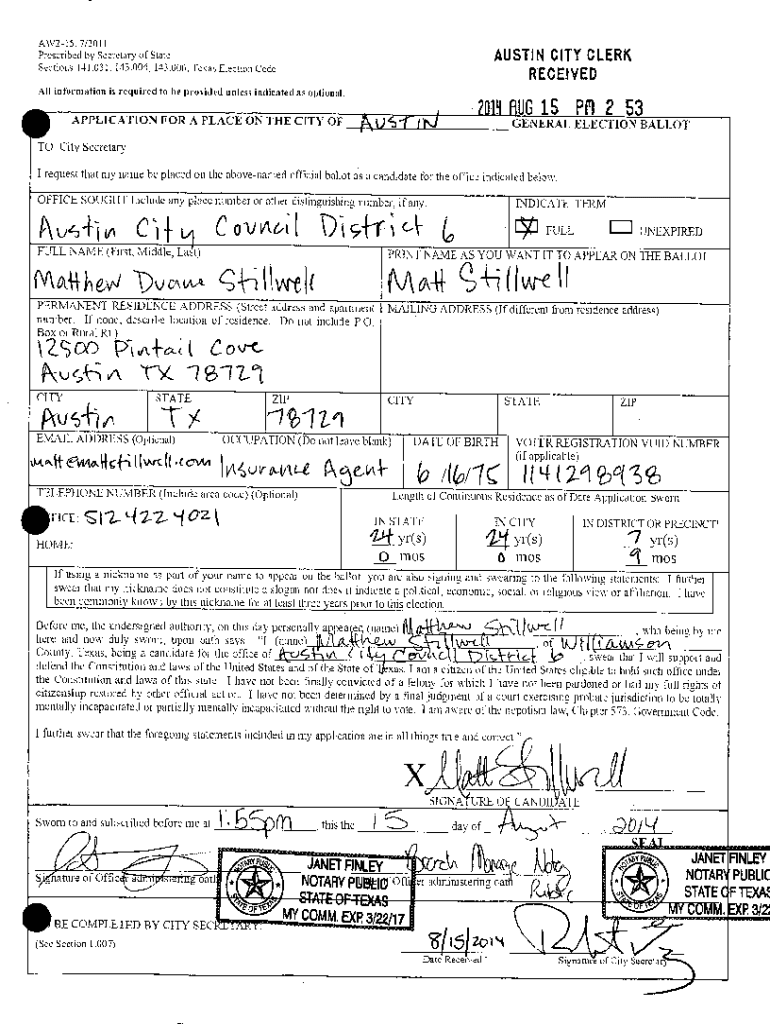 AW2-15, 7/2011
Prescribed by Secretary of State
Sections 141.031, 143.004, 143.006, Texas Election Code
AUSTIN CITY CLERK
RECEIVED
All information is required to be provided unless indicated as optional.
2014 AUG 15 PM 2 53
APPLICATION FOR A PLACE ON THE CITY OF AUSTIN GENERAL ELECTION BALLOT
TO: City Secretary
I request that my name be placed on the above-named official ballot as a candidate for the office indicated below.
OFFICE SOUGHT (Include any place number or other distinguishing number, if any.
INDICATE TERM
Austin City Council District 6
X FULL UNEXPIRED
FULL NAME (First, Middle, Last)
PRINT NAME AS YOU WANT IT TO APPEAR ON THE BALLOT
Matthew Duane Stillwell
Matt Stillwell
PERMANENT RESIDENCE ADDRESS (Street address and apartment
number. If none, describe location of residence. Do not include P.O.
Box or Rural Rt.)
MAILING ADDRESS (If different from residence address)
12500 Pintail Cove
Austin TX 78729
CITY STATE ZIP CITY STATE ZIP
Austin TX 78729
EMAIL ADDRESS (Optional) OCCUPATION (Do not leave blank) DATE OF BIRTH VOTER REGISTRATION VUID NUMBER
(if applicable)
matt@mattstillwell.com Insurance Agent 6/16/75 1141298938
TELEPHONE NUMBER (Include area code) (Optional)
Length of Continuous Residence as of Date Application Sworn
OFFICE: 512 422 4021
IN STATE IN CITY IN DISTRICT OR PRECINCT
24 yr(s) 24 yr(s) 7 yr(s)
HOME:
0 mos 0 mos 9 mos
If using a nickname as part of your name to appear on the ballot, you are also signing and swearing to the following statements: I further
swear that my nickname does not constitute a slogan nor does it indicate a political, economic, social, or religious view or affiliation. I have
been commonly known by this nickname for at least three years prior to this election.
Before me, the undersigned authority, on this day personally appeared (name) Matthew Stillwell, who being by me
here and now duly sworn, upon oath says: "I (name) Matthew Stillwell of Williamson
County, Texas, being a candidate for the office of Austin City Council District 6, swear that I will support and
defend the Constitution and laws of the United States and of the State of Texas. I am a citizen of the United States eligible to hold such office under
the Constitution and laws of this state. I have not been finally convicted of a felony for which I have not been pardoned or had my full rights of
citizenship restored by other official action. I have not been determined by a final judgment of a court exercising probate jurisdiction to be totally
mentally incapacitated or partially mentally incapacitated without the right to vote. I am aware of the nepotism law, Chapter 573, Government Code.
I further swear that the foregoing statements included in my application are in all things true and correct."
X Matt Stillwell
SIGNATURE OF CANDIDATE
Sworn to and subscribed before me at 1:55pm this the 15 day of August 2014
SEAL
Branch Manager Notary
Public
Signature of Officer administering oath
Officer administering oath
NOTARY PUBLIC
STATE OF TEXAS
JANET FINLEY
NOTARY PUBLIC
STATE OF TEXAS
MY COMM. EXP. 3/22/17
NOTARY PUBLIC
STATE OF TEXAS
JANET FINLEY
NOTARY PUBLIC
STATE OF TEXAS
MY COMM. EXP. 3/22
BE COMPLETED BY CITY SECRETARY:
(See Section 1.007)
8/15/2014
Date Received
Signature of City Secretary